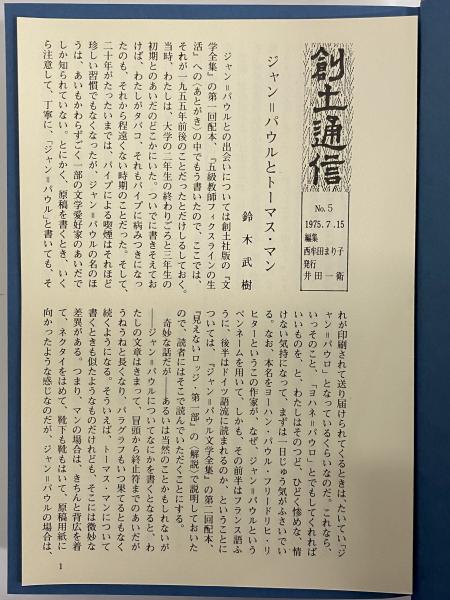 創土通信
No.5
1975.7.15
編集
西牟田まり子
発行
井田一衛
ジャン＝パウルとトーマス・マン
鈴木武樹
ジャン＝パウルとの出会いについては創土社版の『文
学全集』の第一回配本、『五級教師フィクスラインの生
活』への〈あとがき〉の中でもう書いたので、ここでは、
それが一九五五年前後のことだったとだけしるしておく。
当時、わたしは、大学の二年生の終わりごろと三年生の
初期とのあいだのどこかにいた。ついでに書きそえてお
けば、わたしがタバコ、それもパイプに病みつきになっ
たのも、それから程遠くない時期のことだった。そして、
二十年がたったいまでは、パイプによる喫煙はそれほど
珍しい習慣でもなくなったが、ジャン＝パウルの名のほ
うは、あいもかわらずごく一部の文学愛好家のあいだで
しか知られていない。とにかく、原稿を書くとき、いく
ら注意して、丁寧に、「ジャン＝パウル」と書いても、そ
れが印刷されて送り届けられてくるときは、たいてい「ジ
ャン＝パウロ」となっているくらいなのだ。これなら、
いっそのこと、「ヨハネ＝パウロ」とでもしてくれれば
いいものを、と、わたしはそのつど、ひどく惨めな、情
けない気持になって、まずは一日じゅう気がふさいでい
る。なお、本名をヨーハン・パウル・フリードリヒ・リ
ヒターというこの作家が、なぜ、ジャン＝パウルという
ペンネームを用いて、しかも、その前半はフランス語ふ
うに、後半はドイツ語流に読まれるのか、ということに
ついては、『ジャン＝パウル文学全集』の第二回配本、
『見えないロッジ・第一部』の〈解説〉で説明しておいた
ので、読者にはそこで読んでいただくことにする。
奇妙な話だが――あるいは当然のことかもしれないが
――ジャン＝パウルについてなにかを書くとなると、わ
たしの文章はきまって、冒頭から終止符までのあいだが
うねうねと長くなり、パラグラフもいつ果てるともなく
続くようになる。そういえば、トーマス・マンについて
書くときも似たようなものだけれども、そこには微妙な
差異がある。つまり、マンの場合は、きちんと背広を着
て、ネクタイをはめて、靴下も靴もはいて、原稿用紙に
向かったような感じなのだが、ジャン＝パウルの場合は、
1